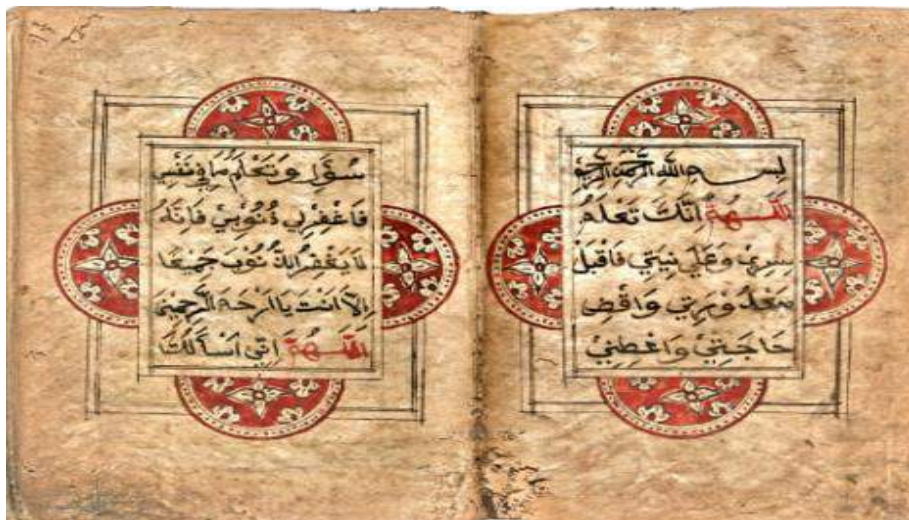 بسم الله الرحمن الرحيم
اللهم انك تعلم
سري وعلى نيتي فاقبل
معذورتي واقض
حاجتي واعطني
سؤلي وتعلم ما في نفسي
فاغفر لي ذنوبي فانه
لا يغفر الذنوب جميعا
الا انت يا ارحم الرحمين
اللهم اني اسألك